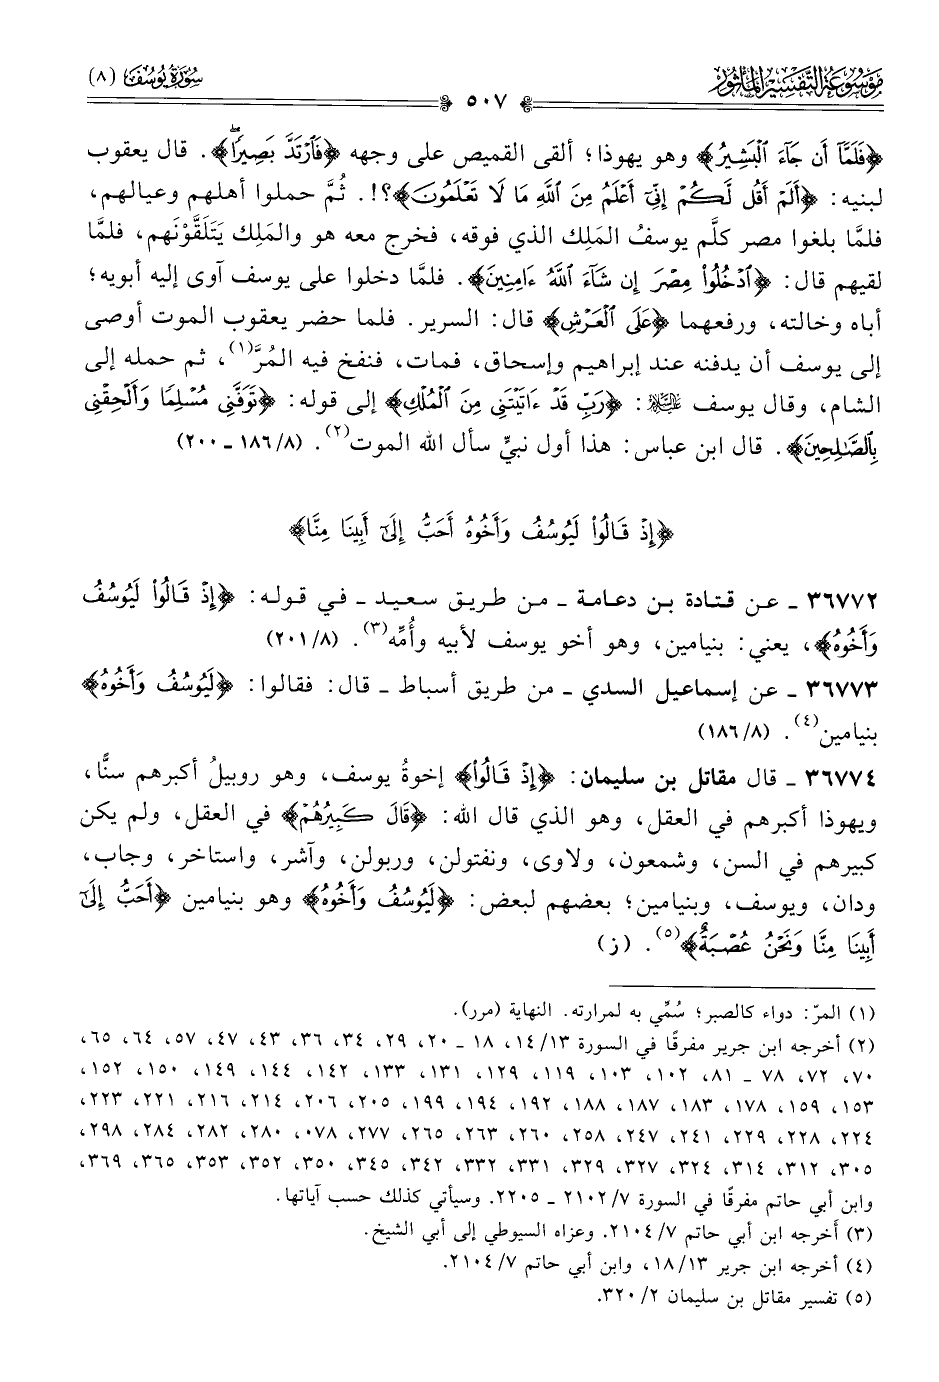 مَوْسُوعَة التَّفْسِيْر المَأْثُور
سُورَةُ يُوسُفَ (٨)
٥٠٧
﴿فَلَمَّآ أَن جَآءَ ٱلْبَشِيرُ﴾ وهو يهوذا؛ ألقى القميص على وجهه ﴿فَٱرْتَدَّ بَصِيرًاۖ﴾. قال يعقوب
لبنيه: ﴿أَلَمْ أَقُل لَّكُمْ إِنِّىٓ أَعْلَمُ مِنَ ٱللَّهِ مَا لَا تَعْلَمُونَ﴾؟!. ثُمَّ حملوا أهلهم وعيالهم،
فلمَّا بلغوا مصر كلَّم يوسفُ المَلِك الذي فوقه، فخرج معه هو والمَلِك يَتَلَقَّوْنَهم، فلمَّا
لقيهم قال: ﴿ٱدْخُلُوا۟ مِصْرَ إِن شَآءَ ٱللَّهُ ءَامِنِينَ﴾. فلمَّا دخلوا على يوسف آوى إليه أبويه؛
أباه وخالته، ورفعهما ﴿عَلَى ٱلْعَرْشِ﴾ قال: السرير. فلما حضر يعقوب الموت أوصى
إلى يوسف أن يدفنه عند إبراهيم وإسحاق، فمات، فنفخ فيه المُرَّ(١)، ثم حمله إلى
الشام، وقال يوسف ﷺ: ﴿رَبِّ قَدْ ءَاتَيْتَنِى مِنَ ٱلْمُلْكِ﴾ إلى قوله: ﴿تَوَفَّنِى مُسْلِمًا وَأَلْحِقْنِى
بِٱلصَّٰلِحِينَ﴾. قال ابن عباس: هذا أول نبيٍّ سأل الله الموت(٢). (٨/ ١٨٦ ـ ٢٠٠)
﴿إِذْ قَالُوا۟ لَيُوسُفُ وَأَخُوهُ أَحَبُّ إِلَىٰٓ أَبِينَا مِنَّا﴾
٣٦٧٧٢ ـ عن قتادة بن دعامة ـ من طريق سعيد ـ في قوله: ﴿إِذْ قَالُوا۟ لَيُوسُفُ
وَأَخُوهُ﴾، يعني: بنيامين، وهو أخو يوسف لأبيه وأُمِّه(٣). (٨/ ٢٠١)
٣٦٧٧٣ ـ عن إسماعيل السدي ـ من طريق أسباط ـ قال: فقالوا: ﴿لَيُوسُفُ وَأَخُوهُ﴾
بنيامين(٤). (٨/ ١٨٦)
٣٦٧٧٤ ـ قال مقاتل بن سليمان: ﴿إِذْ قَالُوا۟﴾ إخوةُ يوسف، وهو روبيلُ أكبرهم سنًّا،
ويهوذا أكبرهم في العقل، وهو الذي قال الله: ﴿قَالَ كَبِيرُهُمْ﴾ في العقل، ولم يكن
كبيرهم في السن، وشمعون، ولاوى، ونفتولن، وربولن، وآشر، واستاخر، وجاب،
ودان، ويوسف، وبنيامين؛ بعضهم لبعض: ﴿لَيُوسُفُ وَأَخُوهُ﴾ وهو بنيامين ﴿أَحَبُّ إِلَىٰٓ
أَبِينَا مِنَّا وَنَحْنُ عُصْبَةٌ﴾(٥). (ز)
(١) المرّ: دواء كالصبر؛ سُمِّي به لمرارته. النهاية (مرر).
(٢) أخرجه ابن جرير مفرقًا في السورة ١٣/ ١٤، ١٨ ـ ٢٠، ٢٩، ٣٤، ٣٦، ٤٣، ٤٧، ٥٧، ٦٤، ٦٥،
٧٠، ٧٢، ٧٨ ـ ٨١، ١٠٢، ١٠٣، ١١٩، ١٢٩، ١٣١، ١٣٣، ١٤٢، ١٤٤، ١٤٩، ١٥٠، ١٥٢،
١٥٣، ١٥٩، ١٧٨، ١٨٣، ١٨٧، ١٨٨، ١٩٢، ١٩٤، ١٩٩، ٢٠٥، ٢٠٦، ٢١٤، ٢١٦، ٢٢١، ٢٢٣،
٢٢٤، ٢٢٨، ٢٢٩، ٢٤١، ٢٤٧، ٢٥٨، ٢٦٠، ٢٦٣، ٢٦٥، ٢٧٧، ٠٧٨، ٢٨٠، ٢٨٢، ٢٨٤، ٢٩٨،
٣٠٥، ٣١٢، ٣١٤، ٣٢٤، ٣٢٧، ٣٢٩، ٣٣١، ٣٣٢، ٣٤٢، ٣٤٥، ٣٥٠، ٣٥٢، ٣٥٣، ٣٦٥، ٣٦٩،
وابن أبي حاتم مفرقًا في السورة ٧/ ٢١٠٢ ـ ٢٢٠٥. وسيأتي كذلك حسب آياتها.
(٣) أخرجه ابن أبي حاتم ٧/ ٢١٠٤. وعزاه السيوطي إلى أبي الشيخ.
(٤) أخرجه ابن جرير ١٣/ ١٨، وابن أبي حاتم ٧/ ٢١٠٤.
(٥) تفسير مقاتل بن سليمان ٢/ ٣٢٠.